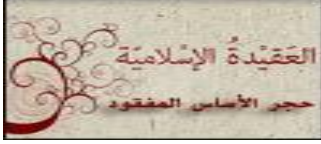 العَقيْدةُ الإسْلاميّة
حجر الأساس المفقود